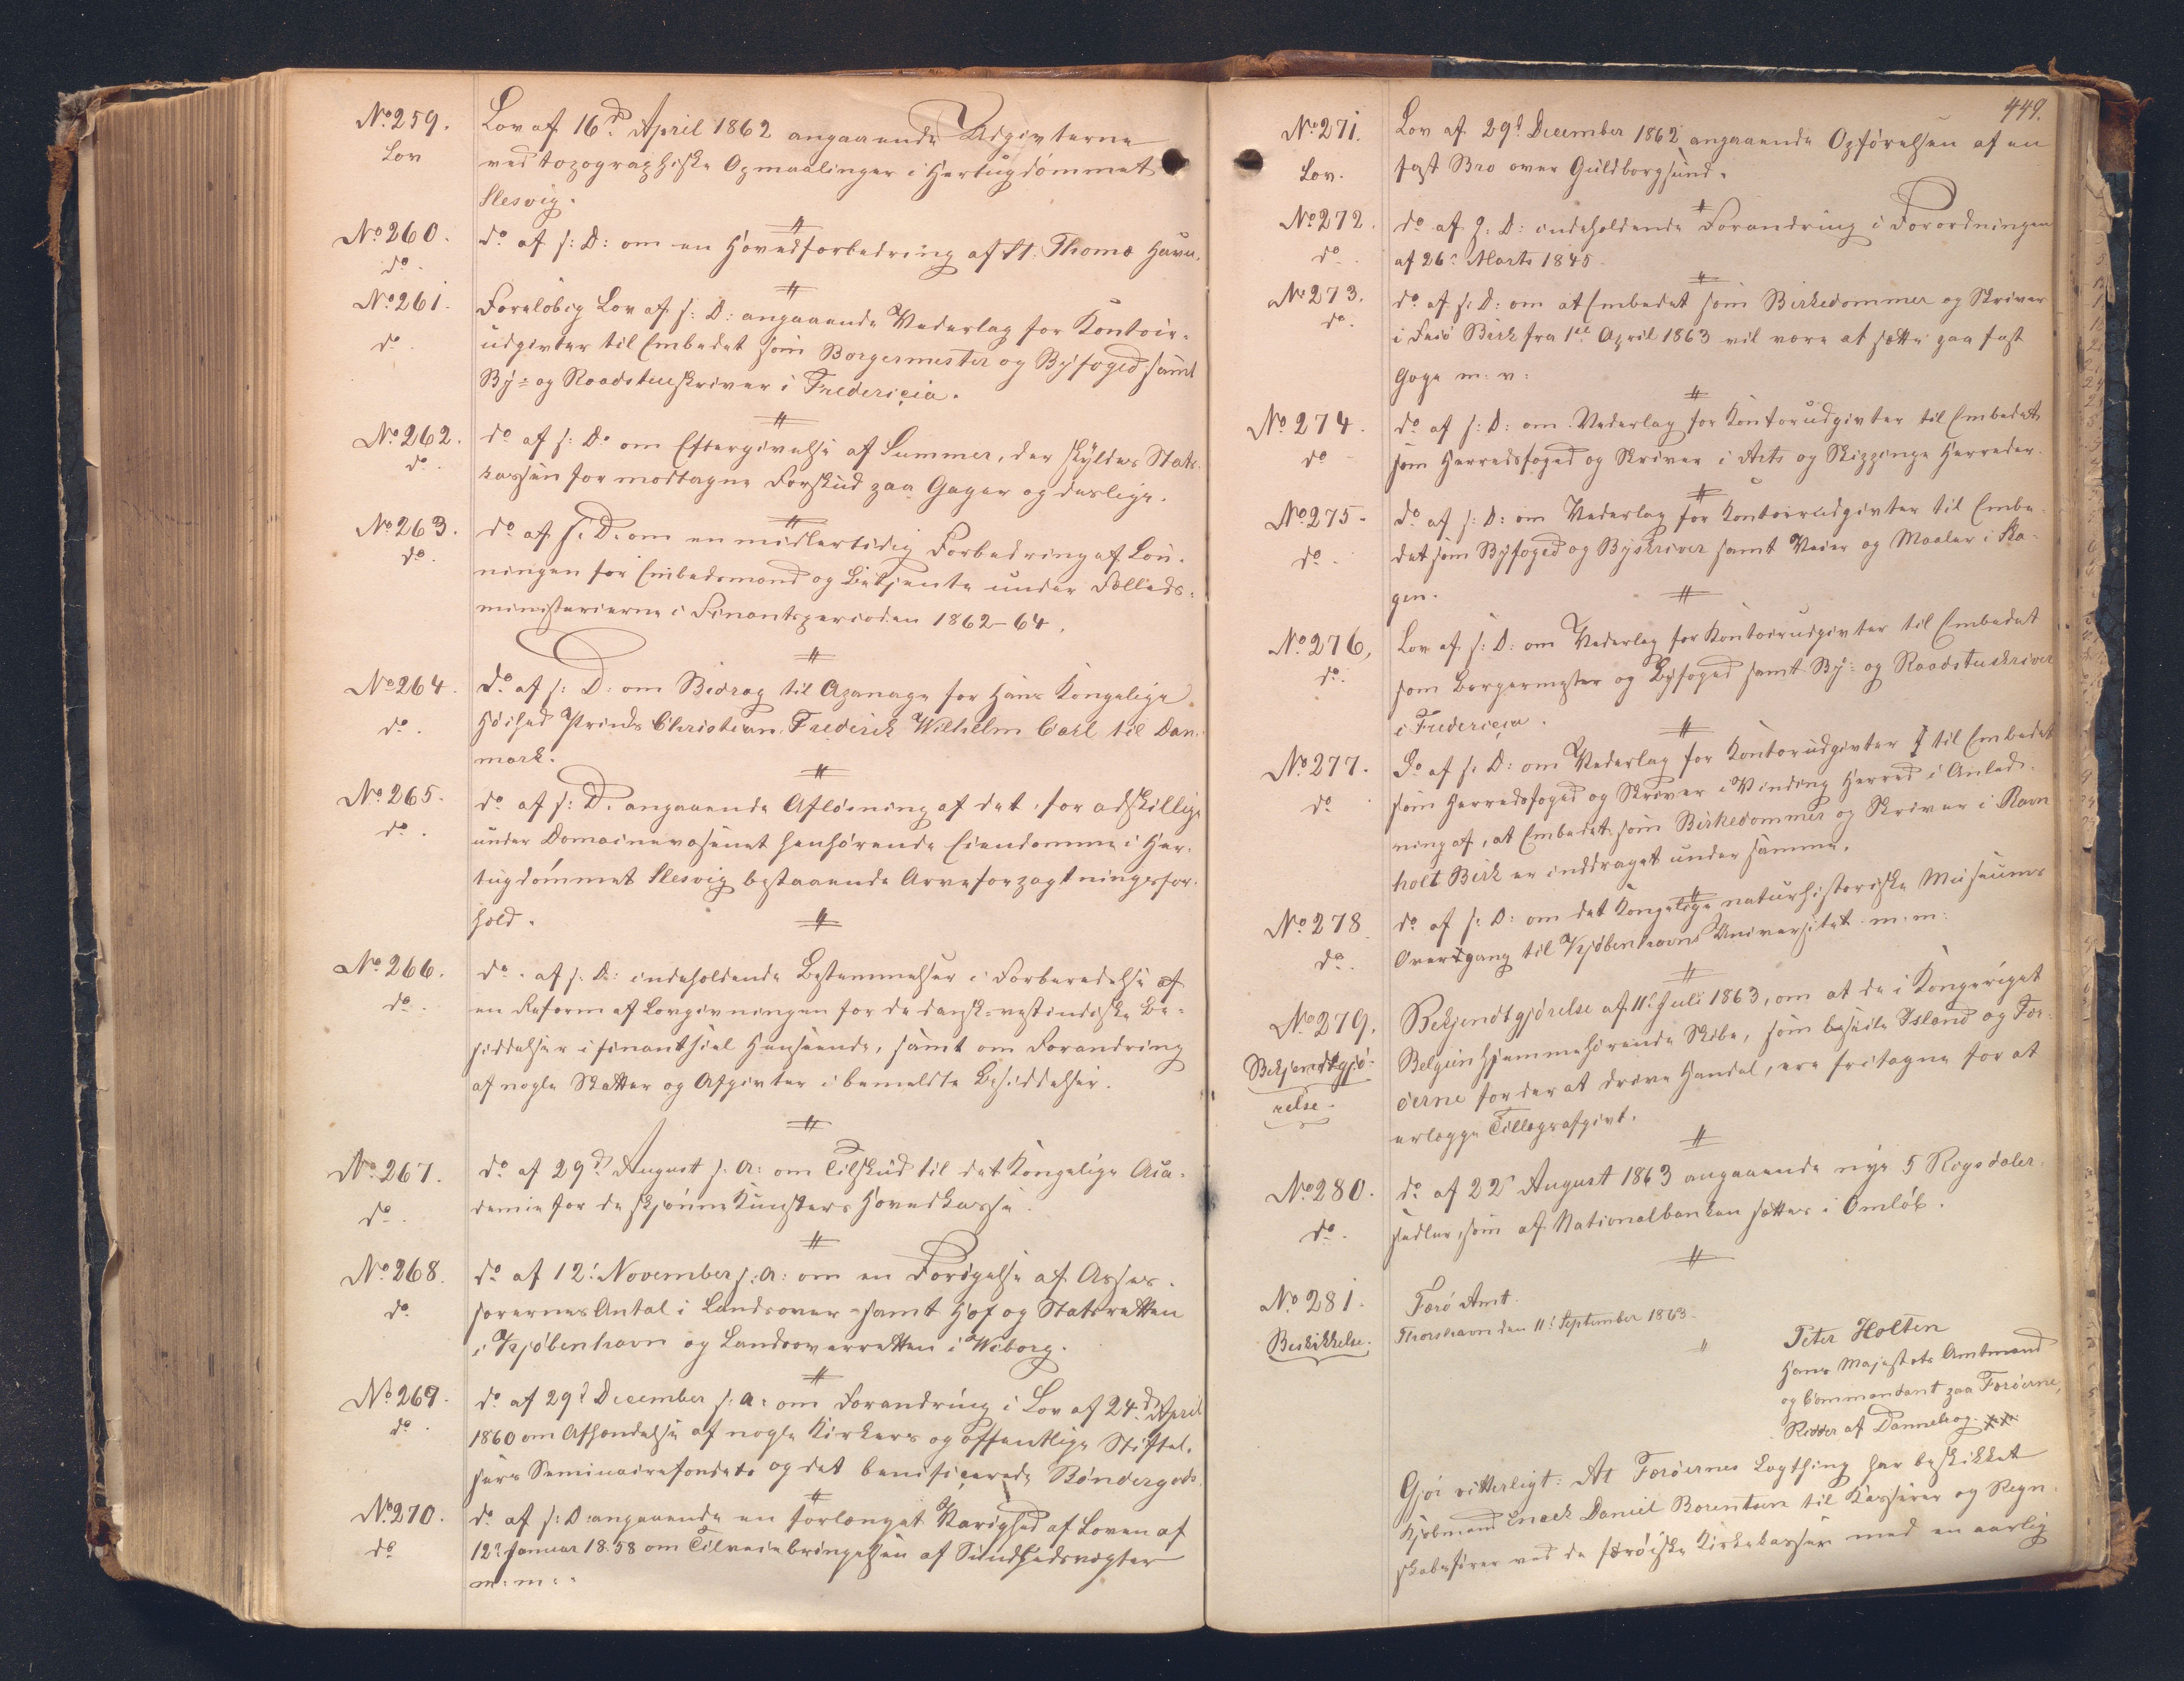 No 259.
Lov
Lov af 16d April 1862 angaaende Udgivterne
ved topographiske Opmaalinger i Hertugdømmet
Slesvig.
No 260.
do.
do af s: D: om en Hovedforbedring af St. Thomæ Havn.
No 261.
do.
Foreløbig Lov af s: D: angaaende Vederlag for Kontoir-
udgivter til Embedet som Borgermester og Byfoged samt
By- og Raadstueskriver i Fredericia.
No 262.
do.
do af s: Do om Eftergivelse af Summer, der skyldes Stats-
kassen for modtagne Forskud paa Gager og deslige.
No 263.
do.
do af s: D. om en midlertidig Forbedring af Løn-
ningen for Embedsmænd og Betjente under Fælleds-
ministerierne i Finantsperioden 1862-64.
No 264.
do.
do af s: D: om Bidrag til Apanage for Hans Kongelige
Høihed Prinds Christian Frederik Wilhelm Carl til Dan-
mark.
No 265.
do.
do af s: D. angaaende Afløsning af det, for adskillige
under Domainevæsenet henhørende Eiendomme i Her-
tugdømmet Slesvig bestaaende Arveforpagtningsfor-
hold.
No 266.
do.
do. af s: D: indeholdende Bestemmelser i Forberedelse af
en Reform af Lovgivningen for de dansk-vestindiske Be-
siddelser i finanthiel Henseende, samt om Forandring
af nogle Skatter og Afgivter i bemeldte Besiddelser.
No 267.
do.
do af 29d August s: A: om Tilskud til det Kongelige Aca-
demie for de skjønne Kunsters Hovedkasse.
No 268.
do.
do af 12' November s: A: om en Forøgelse af Asses-
sorernes Antal i Landsover- samt Hof og Statsretten
i Kjøbenhavn og Landsoverretten i Wiborg.
No 269.
do.
do af 29d December s: A: om Forandring i Lov af 24d April
1860 om Afhændelse af nogle Kirkers og offentlige Stiftel-
sers Seminairefondets og det benificerede Bøndergods
No 270.
do
do af s: D: angaaende en forlænget Varighed af Loven af
12' Januar 1858 om Tilveiebringelsen af Sundhedsvogter
m: m:
449.
No 271.
Lov.
Lov af 29d December 1862 angaaende Opførelsen af en
fast Bro over Guldborgsund.
No 272.
do.
do af s. D: indeholdende Forandring i Forordningen
af 26' Marts 1845.
No 273.
do.
do af s: D: om at Embedet som Birkedommer og Skriver
i Faiø Birk fra 1ste April 1863 vil være at sætte paa fast
Gage m: v:
No 274.
do
do af s: D: om Vederlag for Kontorudgivter til Embedet
som Herredsfoged og Skriver i Arts og Skippinge Herreder.
No 275.
do.
do af s: D: om Vederlag for Kontoirudgivter til Embe-
det som Byfoged og Byskriver samt Veier og Maaler i Ska-
gen.
No 276,
do.
Lov af s: D: om Vederlag for Kontoirudgivter til Embedet
som Borgermester og Byfoged samt By- og Raadstuskriver
i Fredericia.
No 277.
do
Do af s: D: om Vederlag for Kontorudgivter til Embedet
som Herredsfoged og Skriver i Vinding Herred i Anled-
ning af, at Embedet som Birkedommer og Skriver i Ravn
holt Birk er inddraget under samme.
No 278
do.
do af s: D: om det Kongelige naturhistoriske Museums
Overgang til Kjøbenhavns Universitet m: m:
No 279.
Bekjendtgjø-
relse.
Bekjendtgjørelse af 11' Juli 1863, om at de i Kongeriget
Belgien hjemmehørende Skibe, som beseile Island og Fær-
øerne for der at drive Handel, ere fritagne for at
erlægge Tillægsafgivt.
No 280.
do.
do af 22' August 1863 angaaende nye 5 Rigsdaler
sedler, som af Nationalbanken sættes i Omløb.
No 281.
Beskikkelse.
Færø Amt.
Thorshavn den 11' September 1863.
Peter Holten
Hans Majestæts Amtmand
og Commandant paa Færøerne,
Ridder af Dannebrog.
Gjør vitterligt: At Færøernes Lagthing har beskikket
Kjøbmand Enock Daniel Bærentsen til Kasserer og Regn-
skabsfører ved de færøiske Kirkekasser med en aarlig